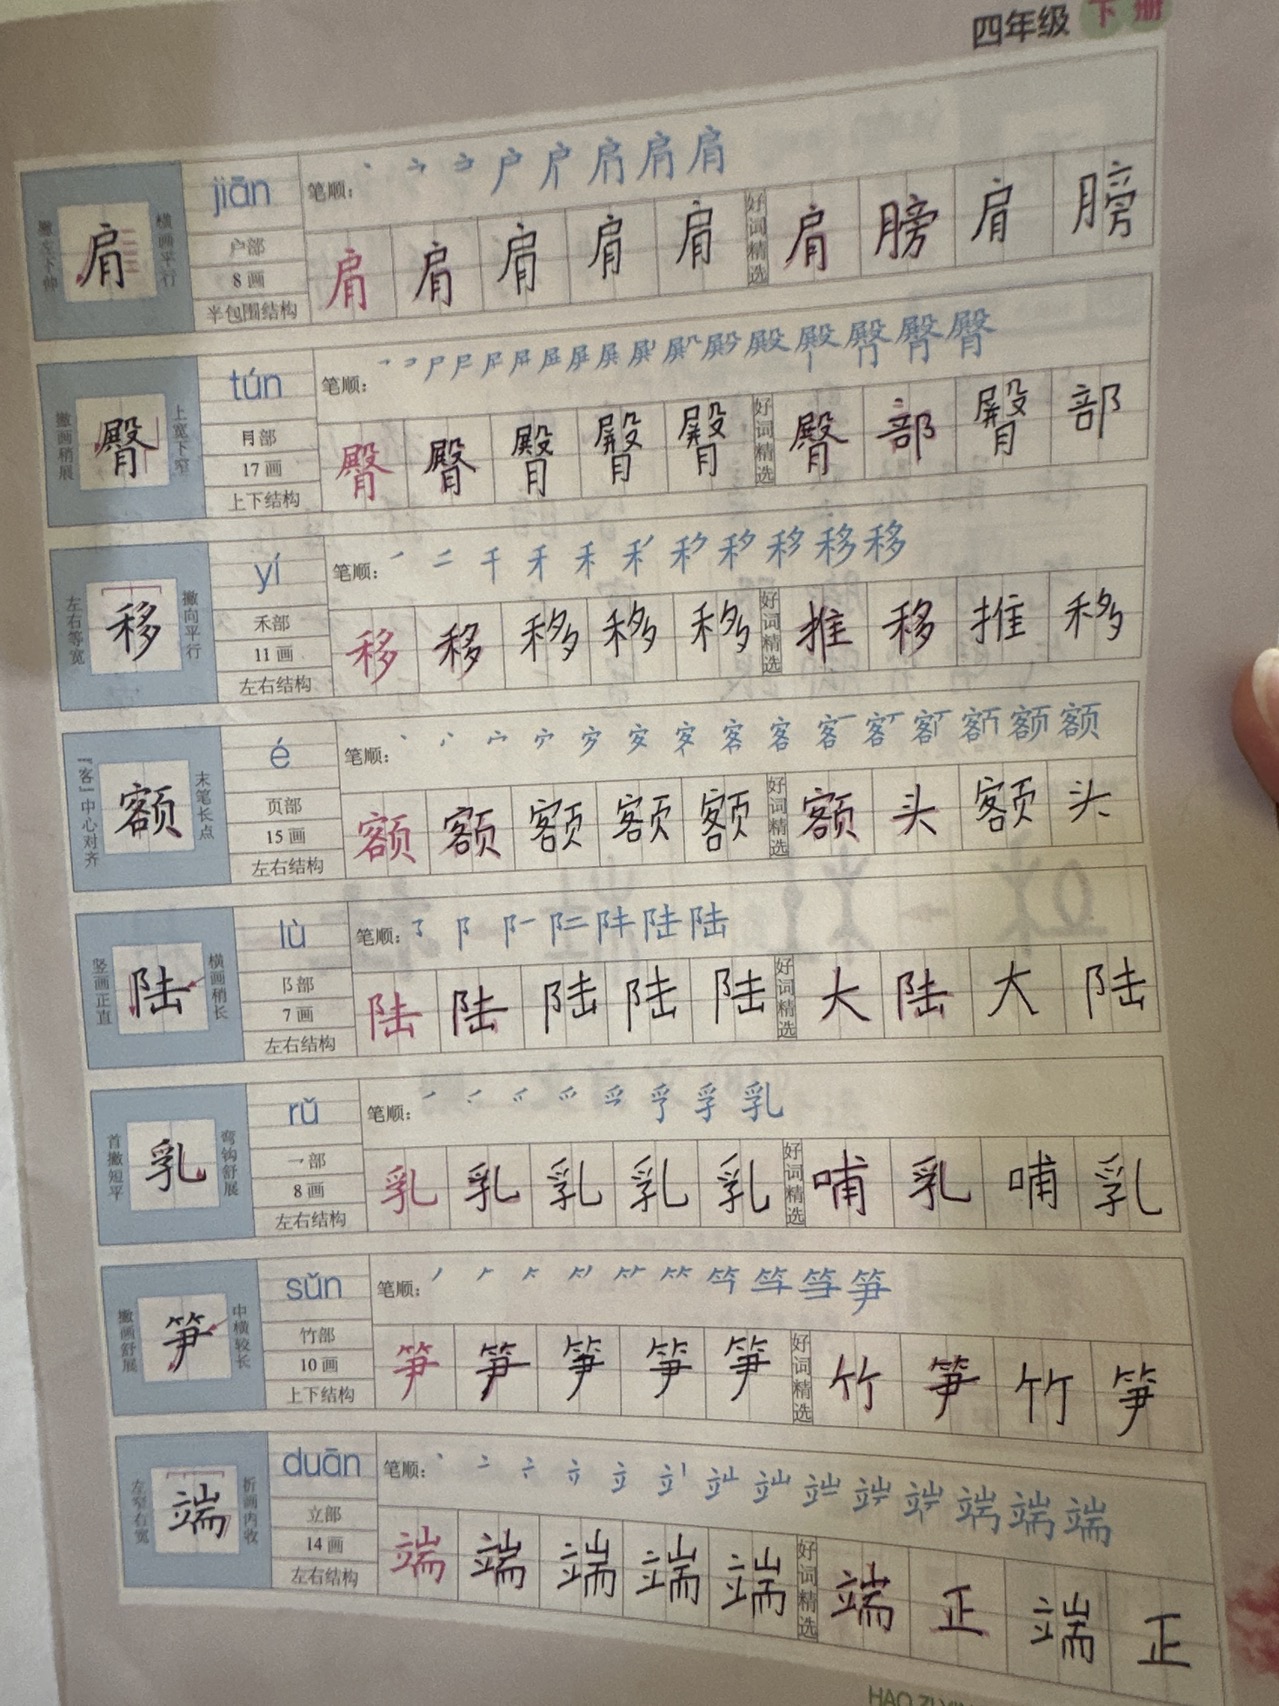 四年级 下册
jiān 笔顺：丶 亠 彐 户 户 肩 肩 肩
撇左下伸 肩 横画平行
户部
8 画
半包围结构
肩 肩 肩 肩 肩 好词精选 肩 膀 肩 膀
tún 笔顺：
撇画稍展 臀 上宽下窄
月部
17 画
上下结构
臀 臀 臀 臀 臀 好词精选 臀 部 臀 部
yí 笔顺：
左右等宽 移 撇向平行
禾部
11 画
左右结构
移 移 移 移 移 好词精选 推 移 推 移
é 笔顺：
“客”中心对齐 额 末笔长点
页部
15 画
左右结构
额 额 额 额 额 好词精选 额 头 额 头
lù 笔顺：
竖画正直 陆 横画稍长
阝部
7 画
左右结构
陆 陆 陆 陆 陆 好词精选 大 陆 大 陆
rǔ 笔顺：
首撇短平 乳 弯钩舒展
乛部
8 画
左右结构
乳 乳 乳 乳 乳 好词精选 哺 乳 哺 乳
sǔn 笔顺：
撇画舒展 笋 中横较长
竹部
10 画
上下结构
笋 笋 笋 笋 笋 好词精选 竹 笋 竹 笋
duān 笔顺：
左窄右宽 端 折画内收
立部
14 画
左右结构
端 端 端 端 端 好词精选 端 正 端 正